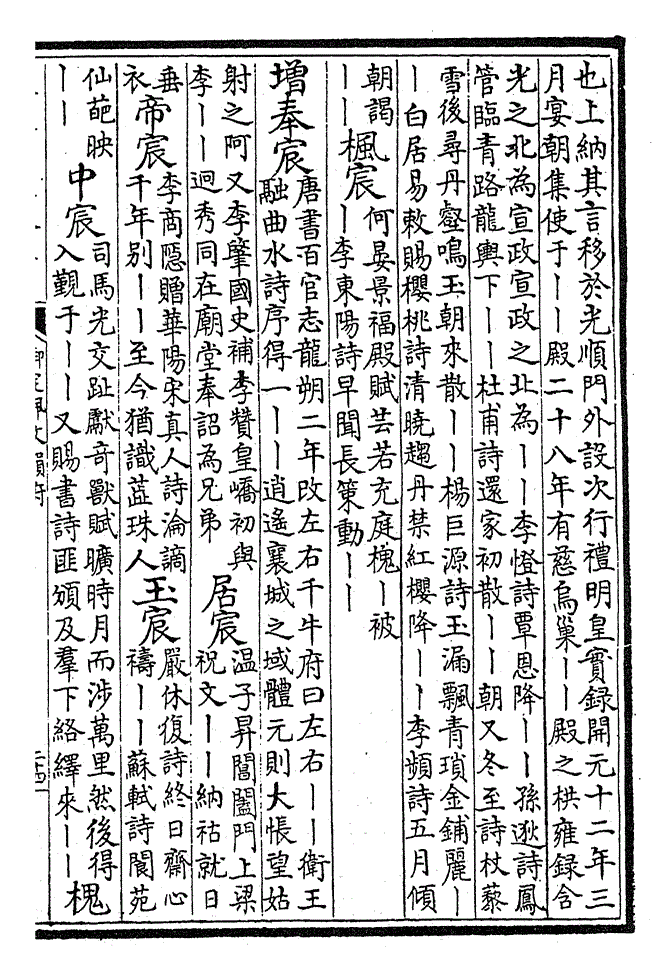 也上納其言移於光順門外設次行禮明皇實録開元十二年三
月宴朝集使于丨丨殿二十八年有慈烏巢丨丨殿之栱雍録含
光之北為宣政宣政之北為丨丨李憕詩覃恩降丨丨孫逖詩鳳
管臨青路龍輿下丨丨杜甫詩還家初散丨丨朝又冬至詩杖藜
雪後尋丹壑鳴玉朝來散丨丨楊巨源詩玉漏飄青瑣金鋪麗丨
丨白居易敕賜櫻桃詩清曉趨丹禁紅櫻降丨丨李頻詩五月傾
朝謁
丨丨
楓宸
何晏景福殿賦芸若充庭槐丨被
丨李東陽詩早聞長策動丨丨
增奉宸
唐書百官志龍朔二年改左右千牛府曰左右丨丨衛王
融曲水詩序得一丨丨逍遥襄城之域體元則大悵望姑
射之阿又李肇國史補李贊皇嶠初與
李丨丨迥秀同在廟堂奉詔為兄弟
居宸
温子昇閶闔門上梁
祝文丨丨納祜就日
垂
衣
帝宸
李商隱贈華陽宋真人詩淪謫
千年别丨丨至今猶識蕋珠人
玉宸
嚴休復詩終日齋心
禱丨丨蘇軾詩閬苑
仙葩映
丨丨
中宸
司馬光交趾獻奇獸賦曠時月而涉萬里然後得
入覲于丨丨又賜書詩匪頒及羣下絡繹來丨丨
槐